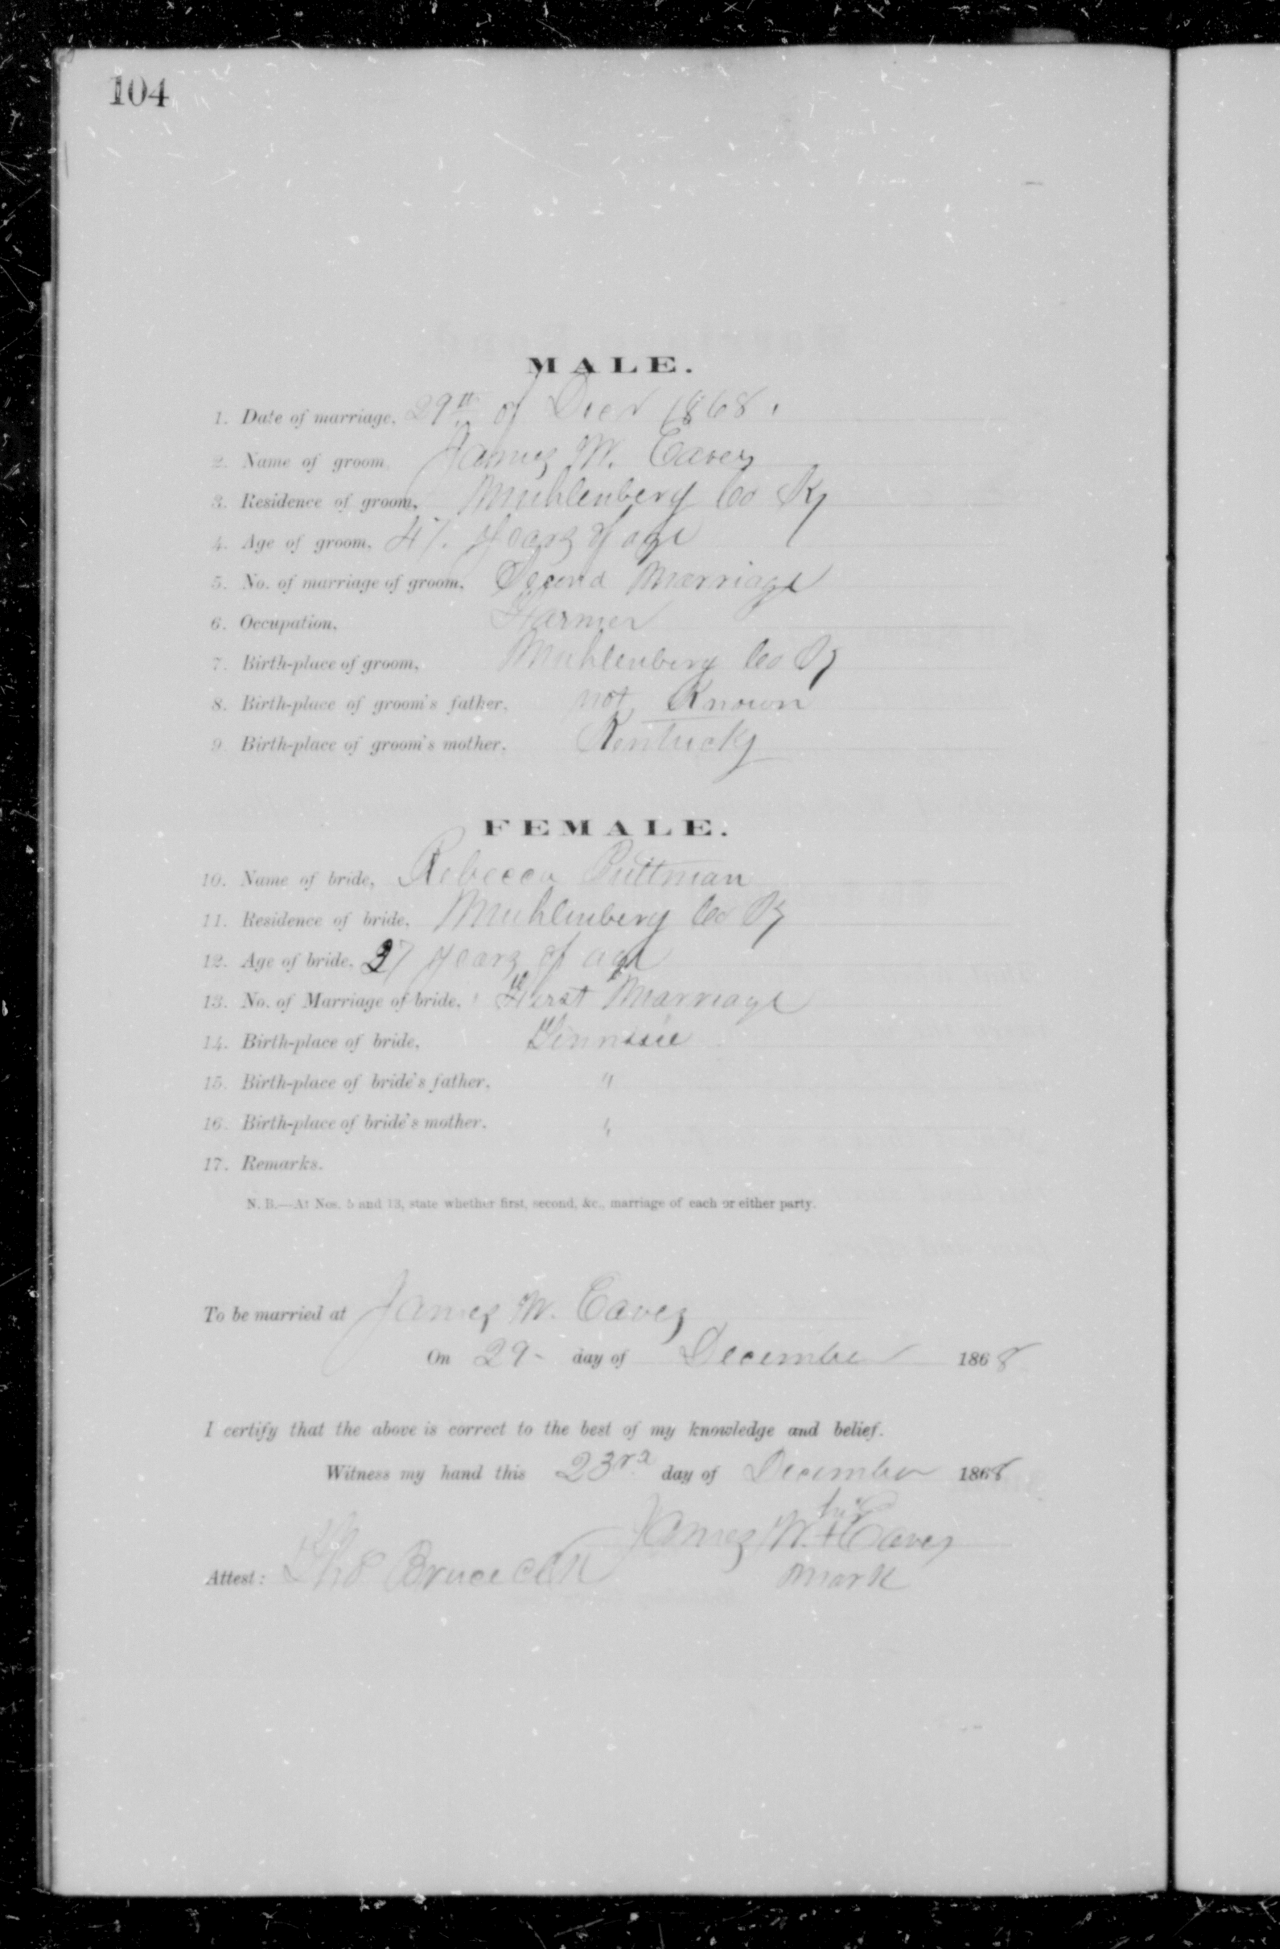 104
MALE.
1. Date of marriage, 29th of Decr 1868.
2. Name of groom, James W. Eaves
3. Residence of groom, Muhlenberg Co Ky
4. Age of groom, 47. years of age
5. No. of marriage of groom, Second Marriage
6. Occupation, Farmer
7. Birth-place of groom, Muhlenberg Co Ky
8. Birth-place of groom's father, not Known
9. Birth-place of groom's mother, Kentucky
FEMALE.
10. Name of bride, Rebecca Pittman
11. Residence of bride, Muhlenberg Co Ky
12. Age of bride, 37 years of age
13. No. of Marriage of bride, First Marriage
14. Birth-place of bride, Tennessee
15. Birth-place of bride's father, "
16. Birth-place of bride's mother, "
17. Remarks.
N. B.—At Nos. 5 and 13, state whether first, second, &c., marriage of each or either party.
To be married at James W. Eaves
On 29- day of December 1868
I certify that the above is correct to the best of my knowledge and belief.
Witness my hand this 23rd day of December 1868
his
James W. + Eaves
Attest: Tho Bruce Clk mark